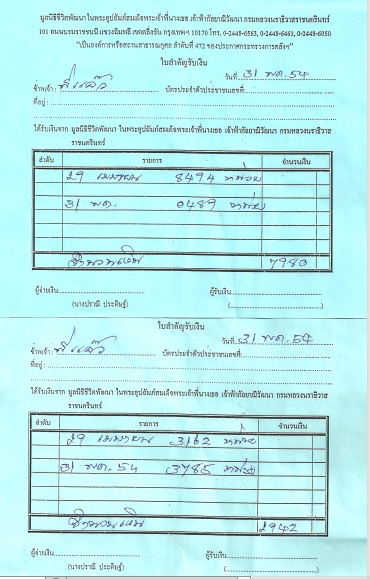 มูลนิธิชีวิตพัฒนา ในพระอุปถัมภ์สมเด็จพระเจ้าพี่นางเธอ เจ้าฟ้ากัลยาณิวัฒนา กรมหลวงนราธิวาสราชนครินทร์
101 ถนนบรมราชชนนี แขวงฉิมพลี เขตตลิ่งชัน กรุงเทพฯ 10170 โทร. 0-2448-6563, 0-2448-6461, 0-2448-6050
"เป็นองค์การหรือสถานสาธารณกุศล ลำดับที่ 472 ของประกาศกระทรวงการคลังฯ"
ใบสำคัญรับเงิน
วันที่ 31 พค. 54
ข้าพเจ้า : พี่แก้ว บัตรประจำตัวประชาชนเลขที่:
ที่อยู่ :
ได้รับเงินจาก มูลนิธิชีวิตพัฒนา ในพระอุปถัมภ์สมเด็จพระเจ้าพี่นางเธอ เจ้าฟ้ากัลยาณิวัฒนา กรมหลวงนราธิวาส
ราชนครินทร์
ลำดับ รายการ จำนวนเงิน
29 เมษายน 8494 หน่วย
31 พค. 0489 หน่วย
จำนวนเงิน 7980
ผู้จ่ายเงิน ผู้รับเงิน
(นางปราณี ประดิษฐ์) ( )
ใบสำคัญรับเงิน
วันที่ 31 พค. 54
ข้าพเจ้า : พี่แก้ว บัตรประจำตัวประชาชนเลขที่:
ที่อยู่ :
ได้รับเงินจาก มูลนิธิชีวิตพัฒนา ในพระอุปถัมภ์สมเด็จพระเจ้าพี่นางเธอ เจ้าฟ้ากัลยาณิวัฒนา กรมหลวงนราธิวาส
ราชนครินทร์
ลำดับ รายการ จำนวนเงิน
29 เมษายน 3162 หน่วย
31 พค. 54 3785 หน่วย
จำนวนเงิน 2942
ผู้จ่ายเงิน ผู้รับเงิน
(นางปราณี ประดิษฐ์) ( )